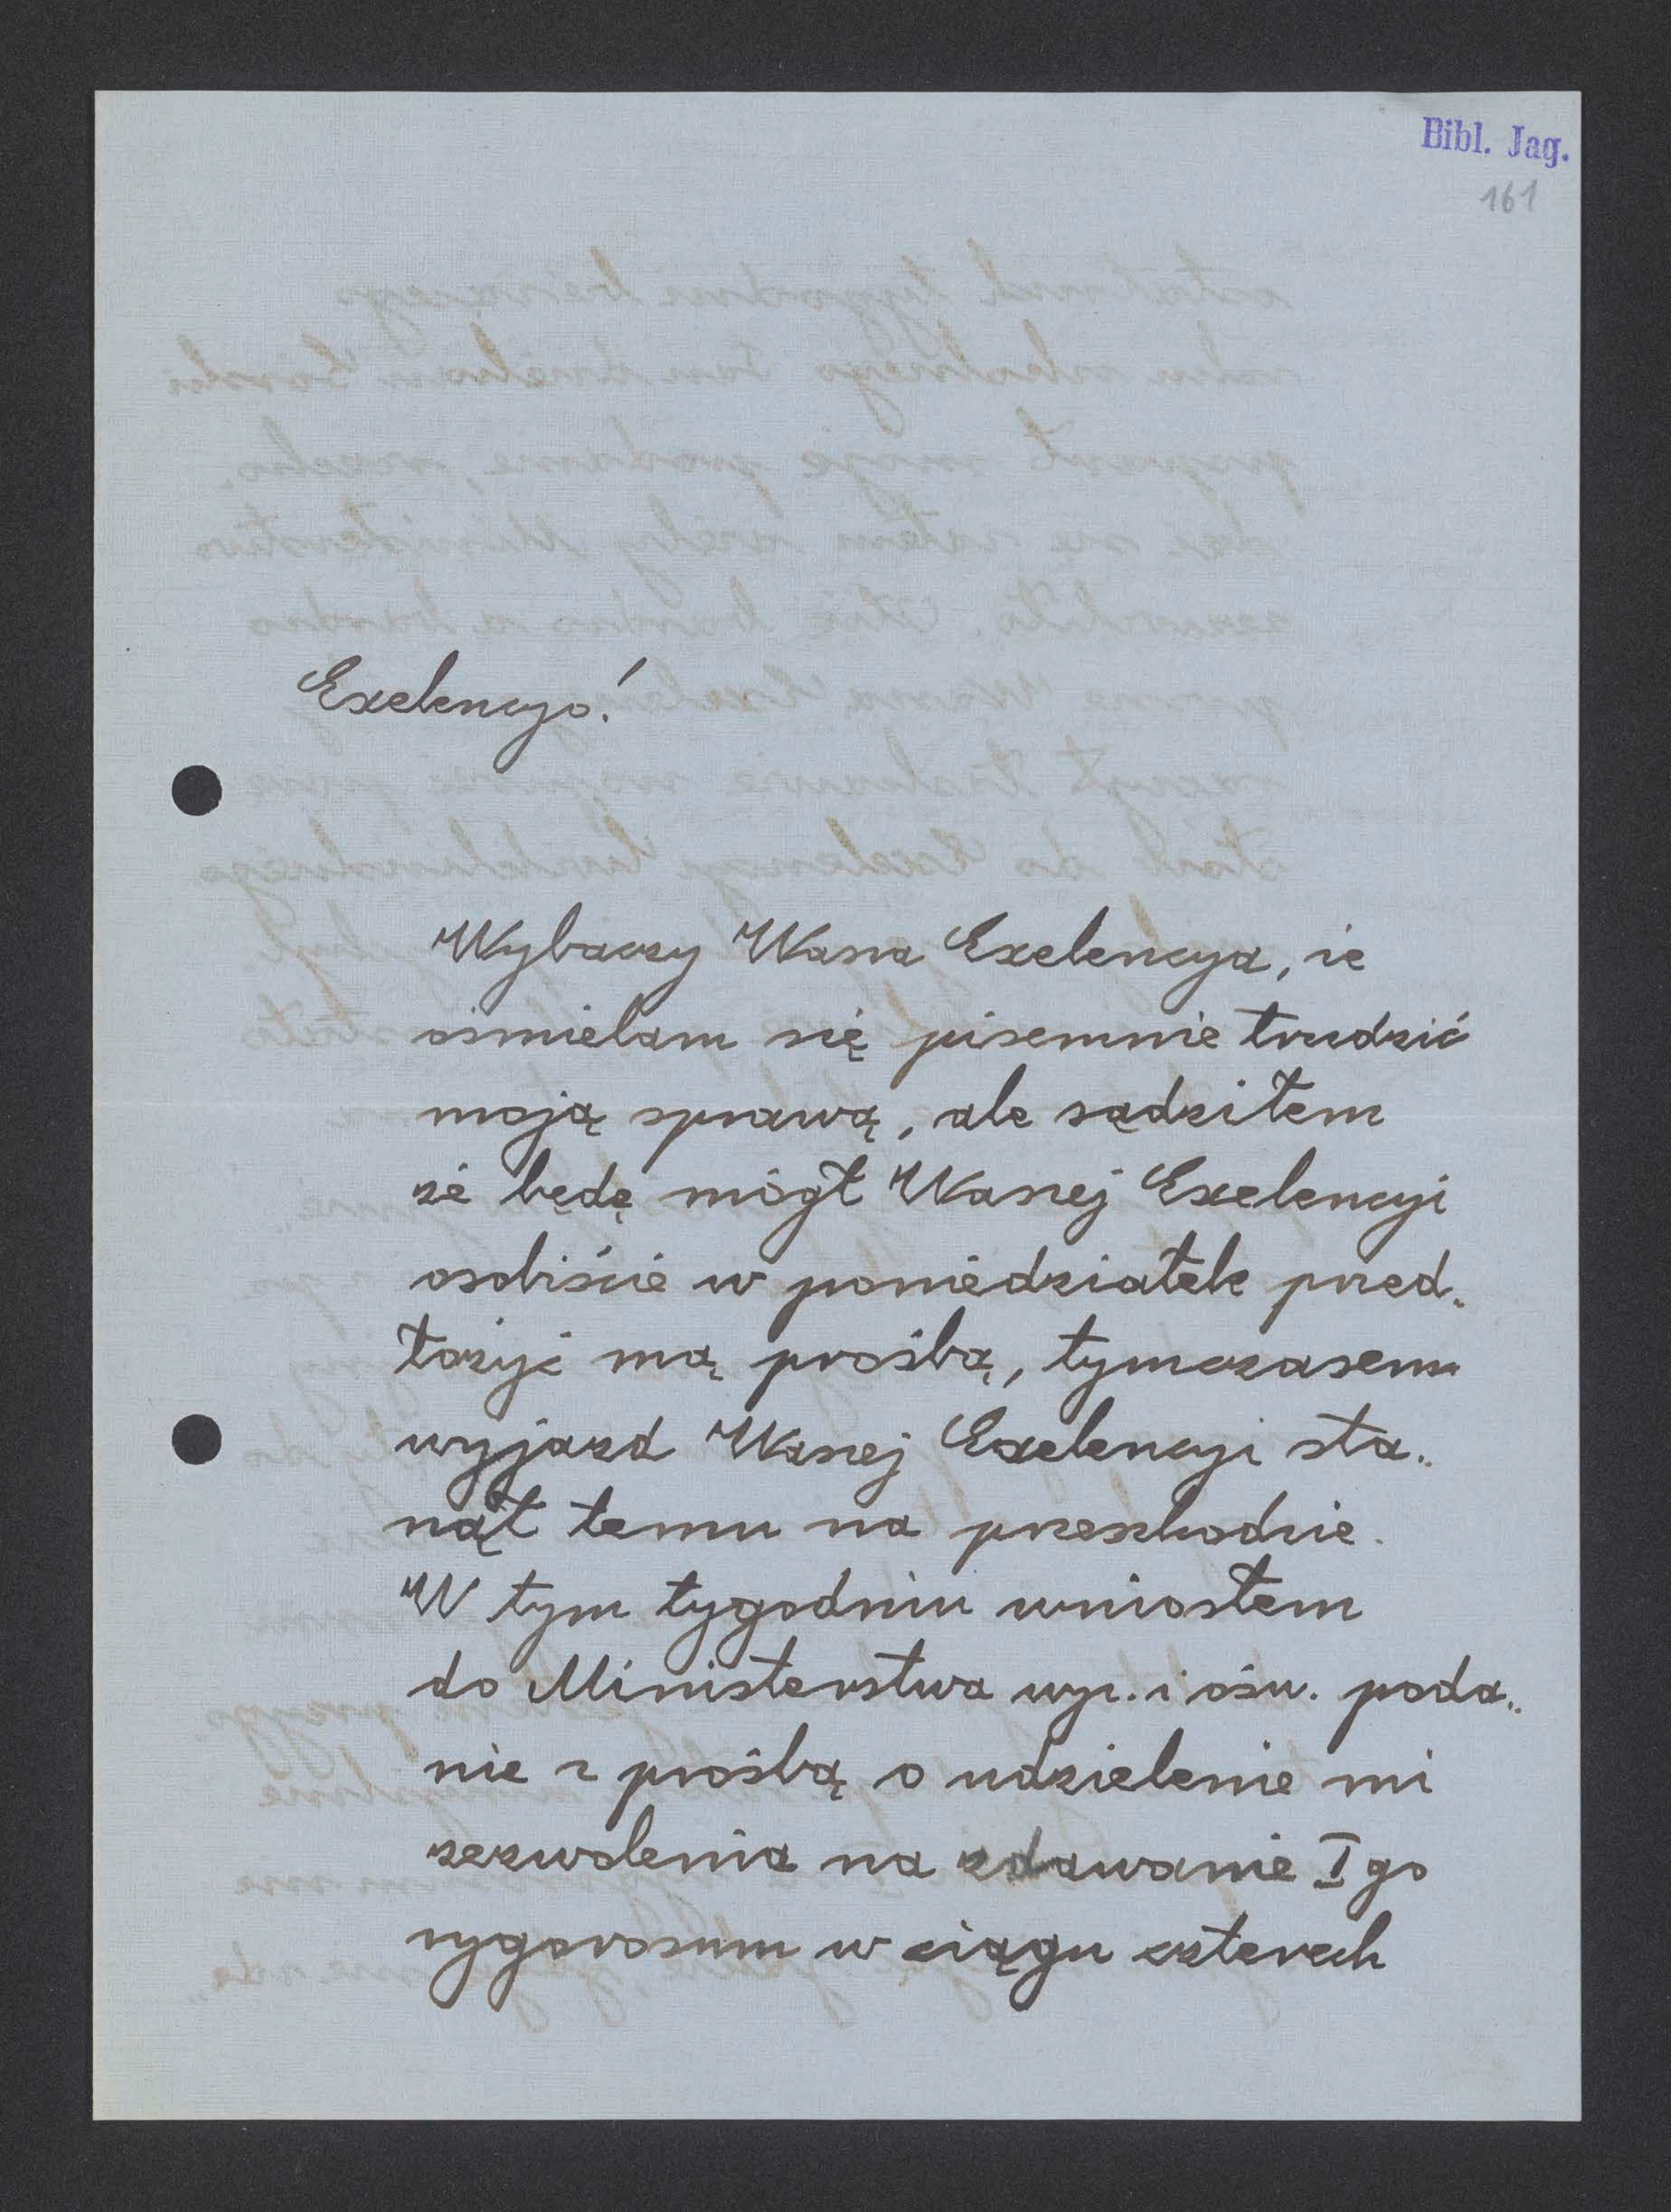 Bibl. Jag.
161
Exelencyo!
Wybaczy Wasza Exelencya, że
ośmielam się pisemnie trudzić
moją sprawą, ale sądziłem
że będę mógł Waszej Exelencyi
osobiście w poniedziałek przed„
łożyć mą prośbą, tymczasem
wyjazd Waszej Exelencyi sta„
nął temu na przeszkodzie.
W tym tygodniu wniosłem
do Ministerstwa wyz. i ośw. poda„
nie z prośbą o udzielenie mi
zezwolenia na zdawanie I go
rygorosum w ciągu czterech